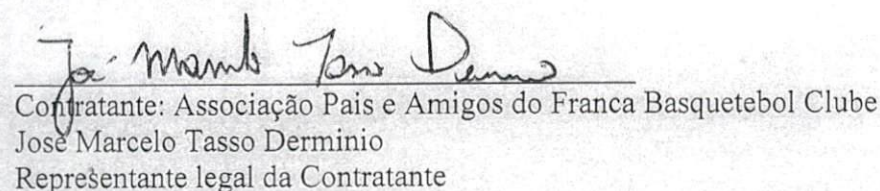 José Marcelo Tasso Derminio
Contratante: Associação Pais e Amigos do Franca Basquetebol Clube
José Marcelo Tasso Derminio
Representante legal da Contratante